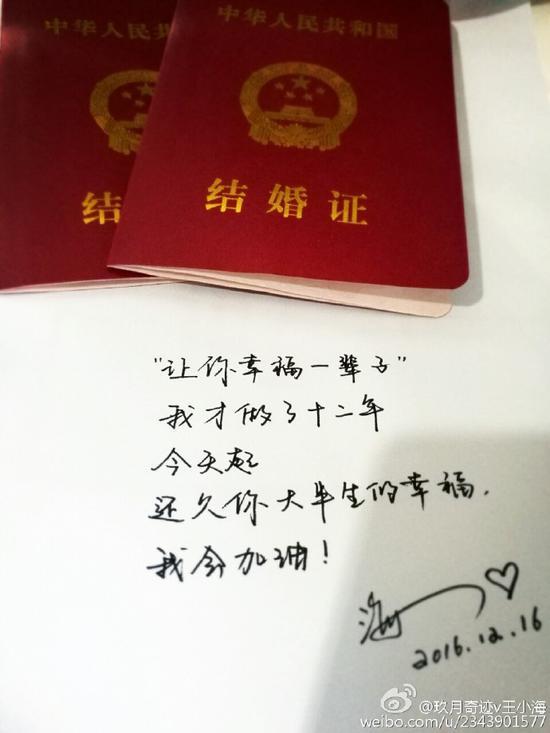 中华人民共
结
中华人民共和国
结婚证
"让你幸福一辈子"
我才做了十二年
今天起
还欠你大半生的幸福.
我会加油!
海
2016.12.16
@玖月奇迹v王小海
weibo.com/u/2343901577